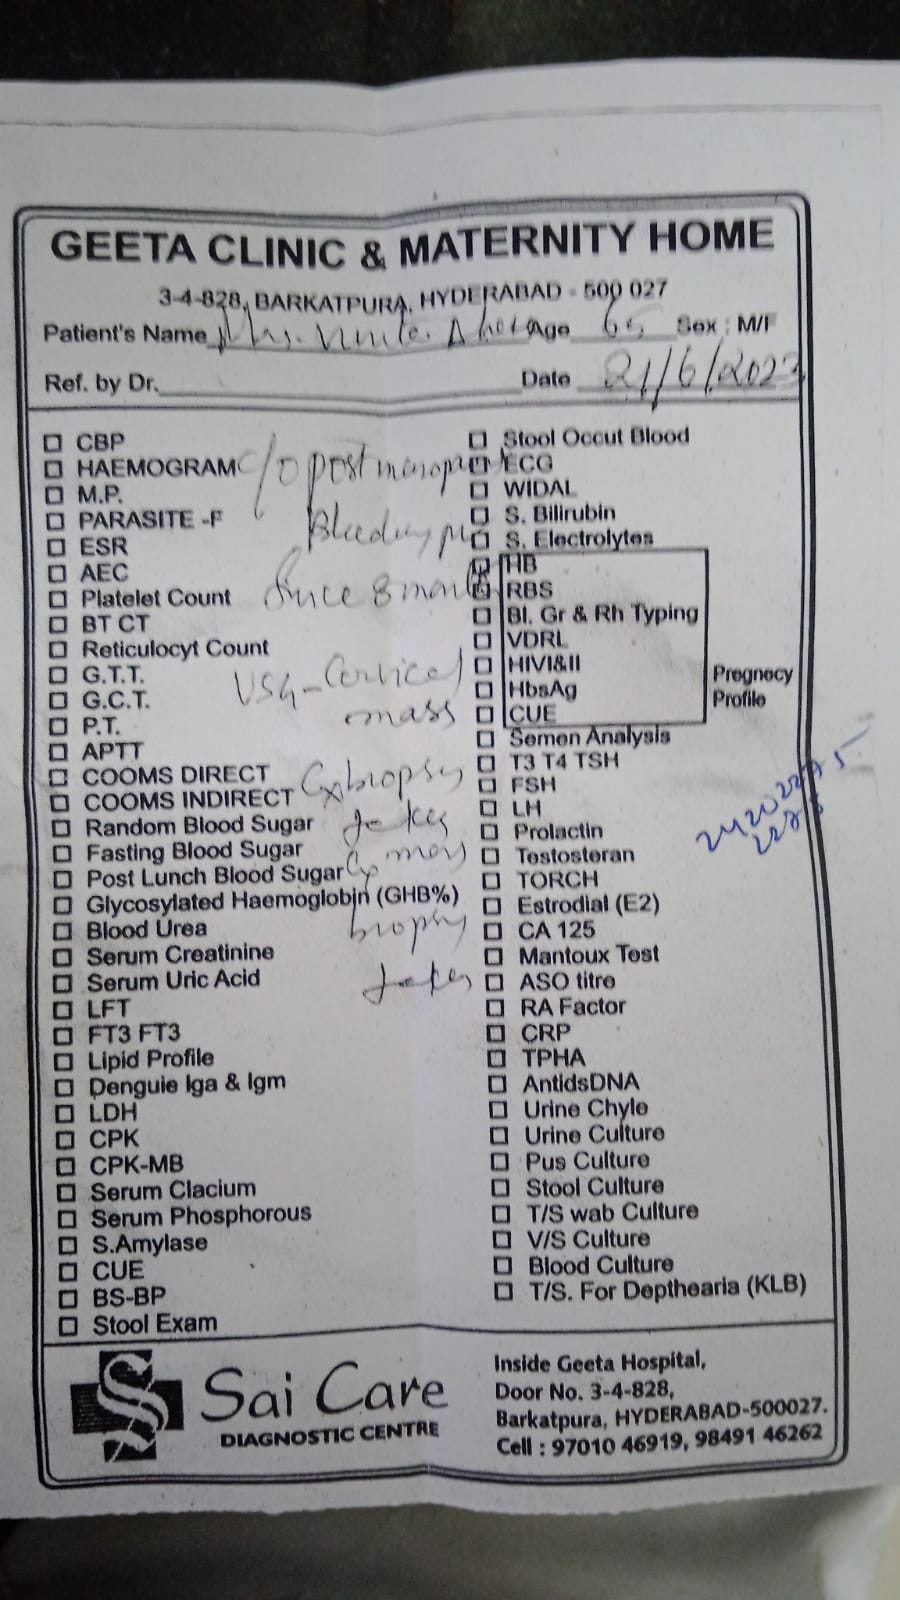 GEETA CLINIC & MATERNITY HOME
3-4-828, BARKATPURA, HYDERABAD - 500 027
Patient's Name Age 65 Sex : M/F
Ref. by Dr. Date 21/6/2023
CBP
HAEMOGRAM
M.P.
PARASITE -F
ESR
AEC
Platelet Count
BT CT
Reticulocyt Count
G.T.T.
G.C.T.
P.T.
APTT
COOMS DIRECT
COOMS INDIRECT
Random Blood Sugar
Fasting Blood Sugar
Post Lunch Blood Sugar
Glycosylated Haemoglobin (GHB%)
Blood Urea
Serum Creatinine
Serum Uric Acid
LFT
FT3 FT3
Lipid Profile
Denguie Iga & Igm
LDH
CPK
CPK-MB
Serum Clacium
Serum Phosphorous
S.Amylase
CUE
BS-BP
Stool Exam
c/o post menop
Bleeding
Since 8 mon
USG - Cervical
mass
Cx biopsy
Cx mass
biopsy
Stool Occut Blood
ECG
WIDAL
S. Bilirubin
S. Electrolytes
HB
RBS
Bl. Gr & Rh Typing
VDRL
HIVI&II
HbsAg
CUE
Pregnecy
Profile
Semen Analysis
T3 T4 TSH
FSH
LH
Prolactin
Testosteran
TORCH
Estrodial (E2)
CA 125
Mantoux Test
ASO titre
RA Factor
CRP
TPHA
AntidsDNA
Urine Chyle
Urine Culture
Pus Culture
Stool Culture
T/S wab Culture
V/S Culture
Blood Culture
T/S. For Depthearia (KLB)
Sai Care
DIAGNOSTIC CENTRE
Inside Geeta Hospital,
Door No. 3-4-828,
Barkatpura, HYDERABAD-500027.
Cell : 97010 46919, 98491 46262